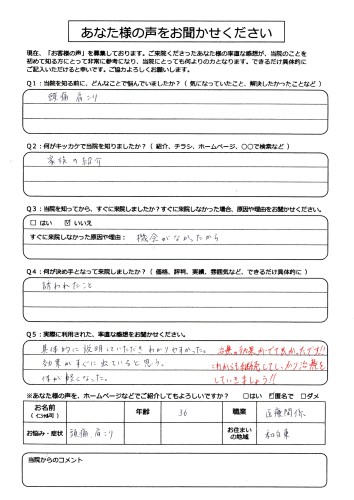 あなた様の声をお聞かせください
現在、「お客様の声」を募集しております。ご来院くださったあなた様の率直な感想が、当院のことを
初めて知る方にとって非常に参考になり、当院にとっても何よりの力となります。できるだけ具体的に
ご記入いただけると幸いです。ご協力よろしくお願いします。
Q1：当院を知る前に、どんなことで悩んでいましたか？（ 気になっていたこと、解決したかったことなど ）
頭痛 肩こり
Q2：何がキッカケで当院を知りましたか？（ 紹介、チラシ、ホームページ、〇〇で検索など ）
家族の紹介
Q3：当院を知ってから、すぐに来院しましたか？すぐ来院しなかった場合、原因や理由をお聞かせください。
□ はい ☑ いいえ
すぐに来院しなかった原因や理由： 機会がなかったから
Q4：何が決め手となって来院しましたか？（ 価格、評判、実績、雰囲気など、できるだけ具体的に ）
誘われたこと
Q5：実際に利用された、率直な感想をお聞かせください。
具体的に説明していただき わかりやすかった。 治療の効果がでて良かったです!!
効果がすぐに出ていると思う。 これからも継続してしっかり治療を
体が軽くなった。 していきましょう!!
※あなた様の声を、ホームページなどでご紹介してもよろしいですか？ □はい ☑匿名で □ダメ
お名前 年齢 36 職業 医療関係
（ｲﾆｼｬﾙ可）
お悩み・症状 頭痛 肩こり お住まいの地域
当院からのコメント